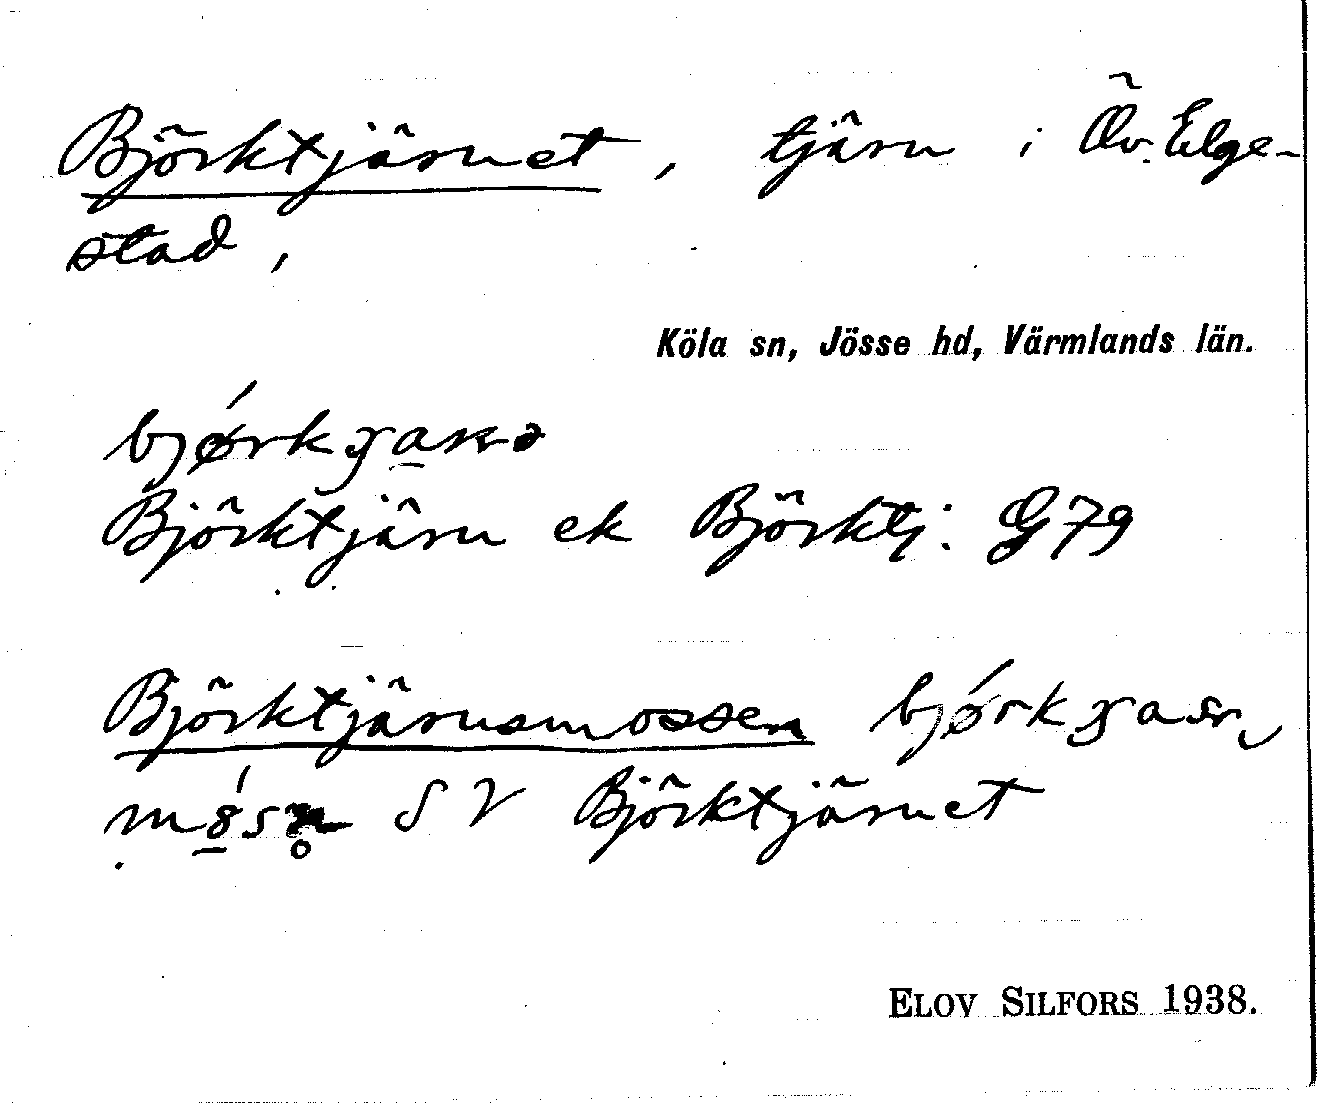 Björktjärnet, tjärn i Öv. Elge-
stad,
Köla sn, Jösse hd, Värmlands län.
Björktjärn ek Björktj: G79
Björktjärnsmossen
SV Björktjärnet
ELOV SILFORS 1938.